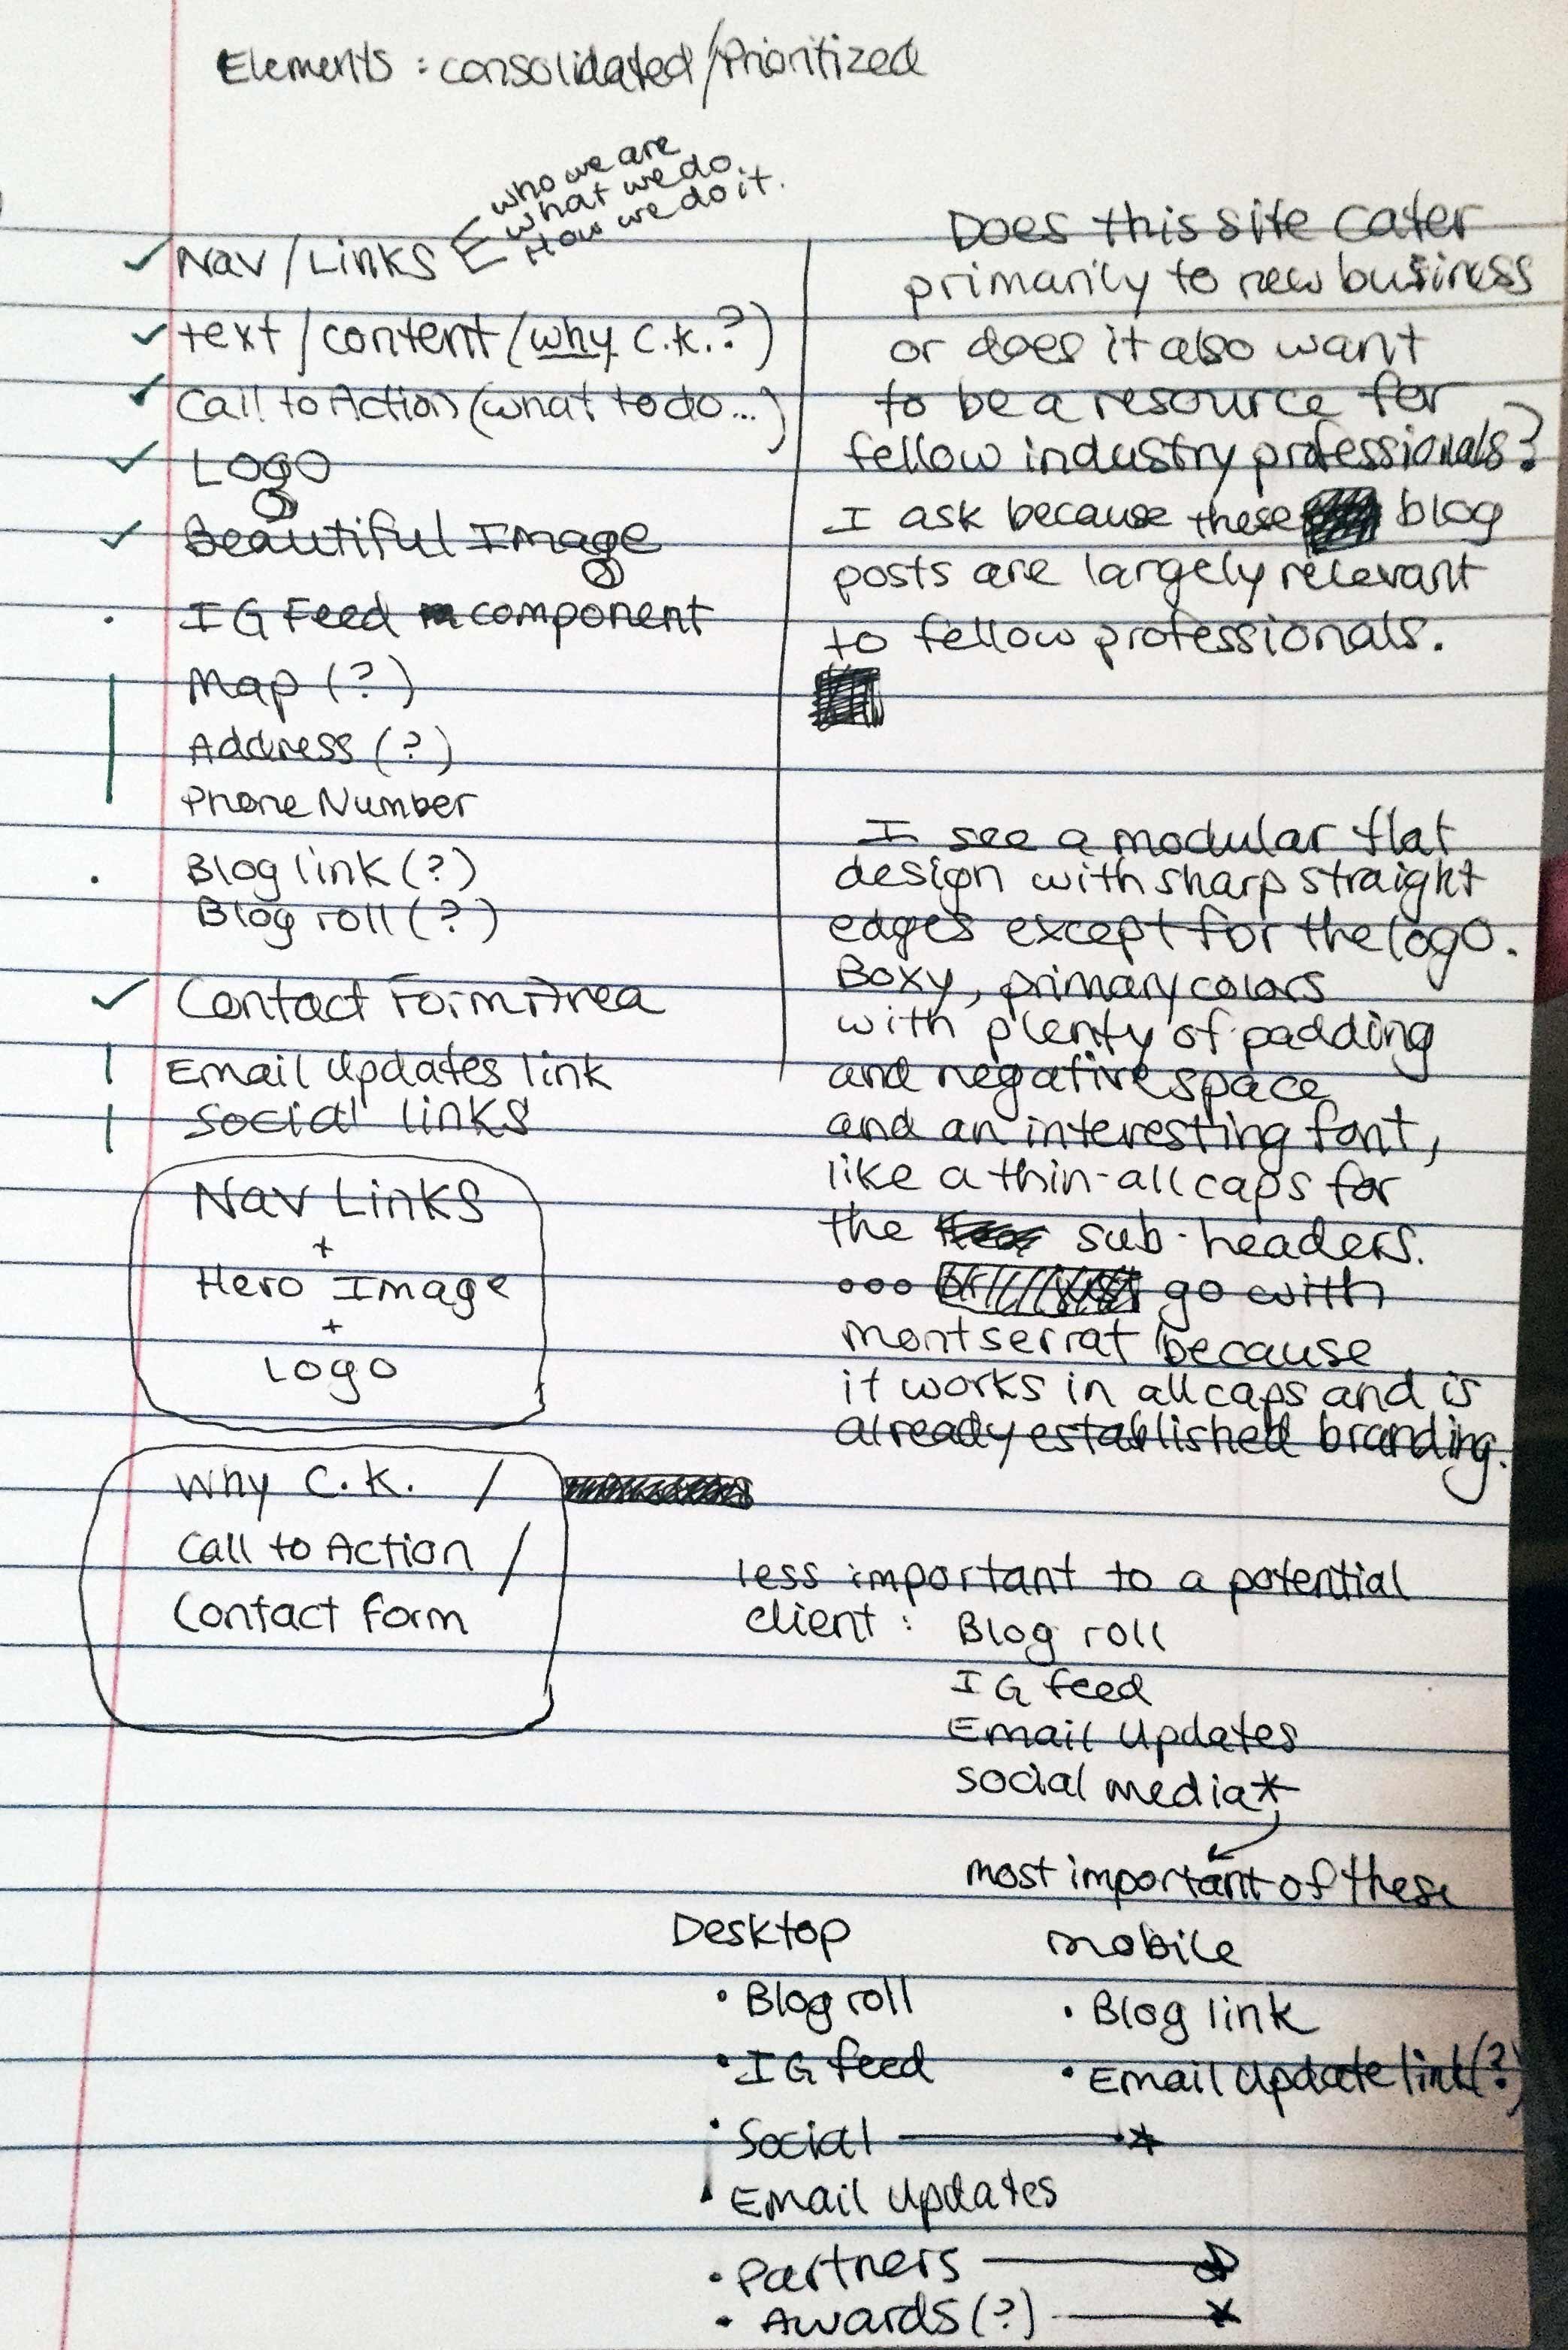 Elements : consolidated/Prioritized
who we are
what we do.
How we do it.
Nav / Links
text / content (why C.K.?)
Call to Action (what to do...)
Logo
Beautiful Image
IG Feed component
Map (?)
Address (?)
Phone Number
Blog link (?)
Blog roll (?)
Contact Form Area
Email Updates link
Social links
Nav Links
+
Hero Image
+
Logo
Why C.K. /
Call to Action /
Contact form
Does this site cater
primarily to new business
or does it also want
to be a resource for
fellow industry professionals?
I ask because these blog
posts are largely relevant
to fellow professionals.
I see a modular flat
design with sharp straight
edges except for the logo.
Boxy, primary colors
with plenty of padding
and negative space
and an interesting font,
like a thin-all caps for
the sub-headers.
... go with
montserrat because
it works in all caps and is
already established branding.
less important to a potential
client : Blog roll
IG feed
Email Updates
social media*
most important of these
Desktop
• Blog roll
• IG feed
• Social
• Email updates
• Partners
• Awards (?)
mobile
• Blog link
• Email update link (?)